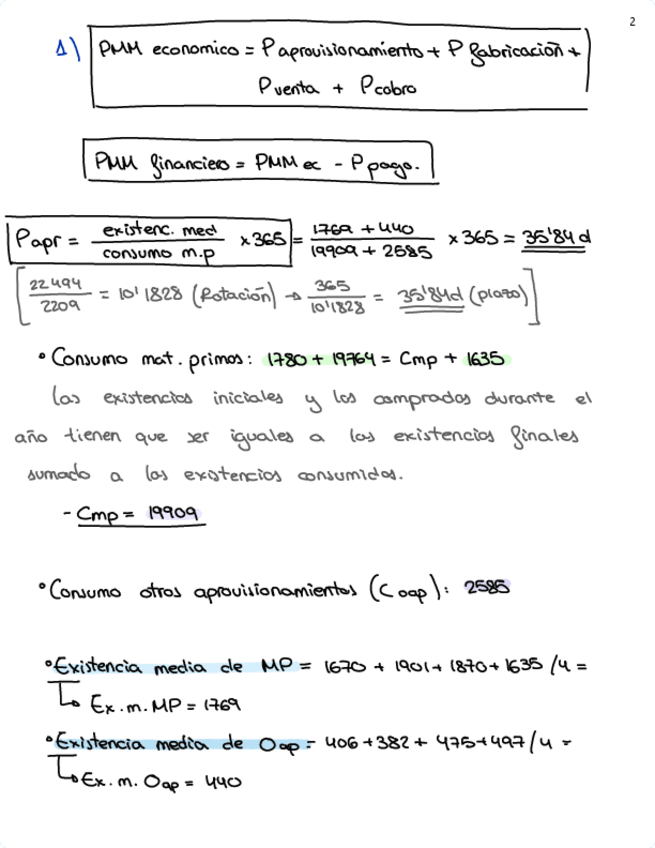 2
1) PMM economico = P aprovisionamiento + P fabricación +
P venta + P cobro
PMM financiero = PMM ec - P pago.
Papr = existenc. med / consumo m.p x 365 = 1769 + 440 / 19909 + 2585 x 365 = 35'84 d
[ 22494 / 2209 = 10'1828 (Rotación) → 365 / 10'1828 = 35'84d (plazo) ]
• Consumo mat. primas: 1780 + 19764 = Cmp + 1635
Las existencias iniciales y las compradas durante el
año tienen que ser iguales a las existencias finales
sumado a las existencias consumidas.
- Cmp = 19909
• Consumo otros aprovisionamientos (Coap): 2585
• Existencia media de MP = 1670 + 1901 + 1870 + 1635 /4 =
↳ Ex.m.MP = 1769
• Existencia media de Oap = 406 + 382 + 475 + 497 / 4 =
↳ Ex.m. Oap = 440